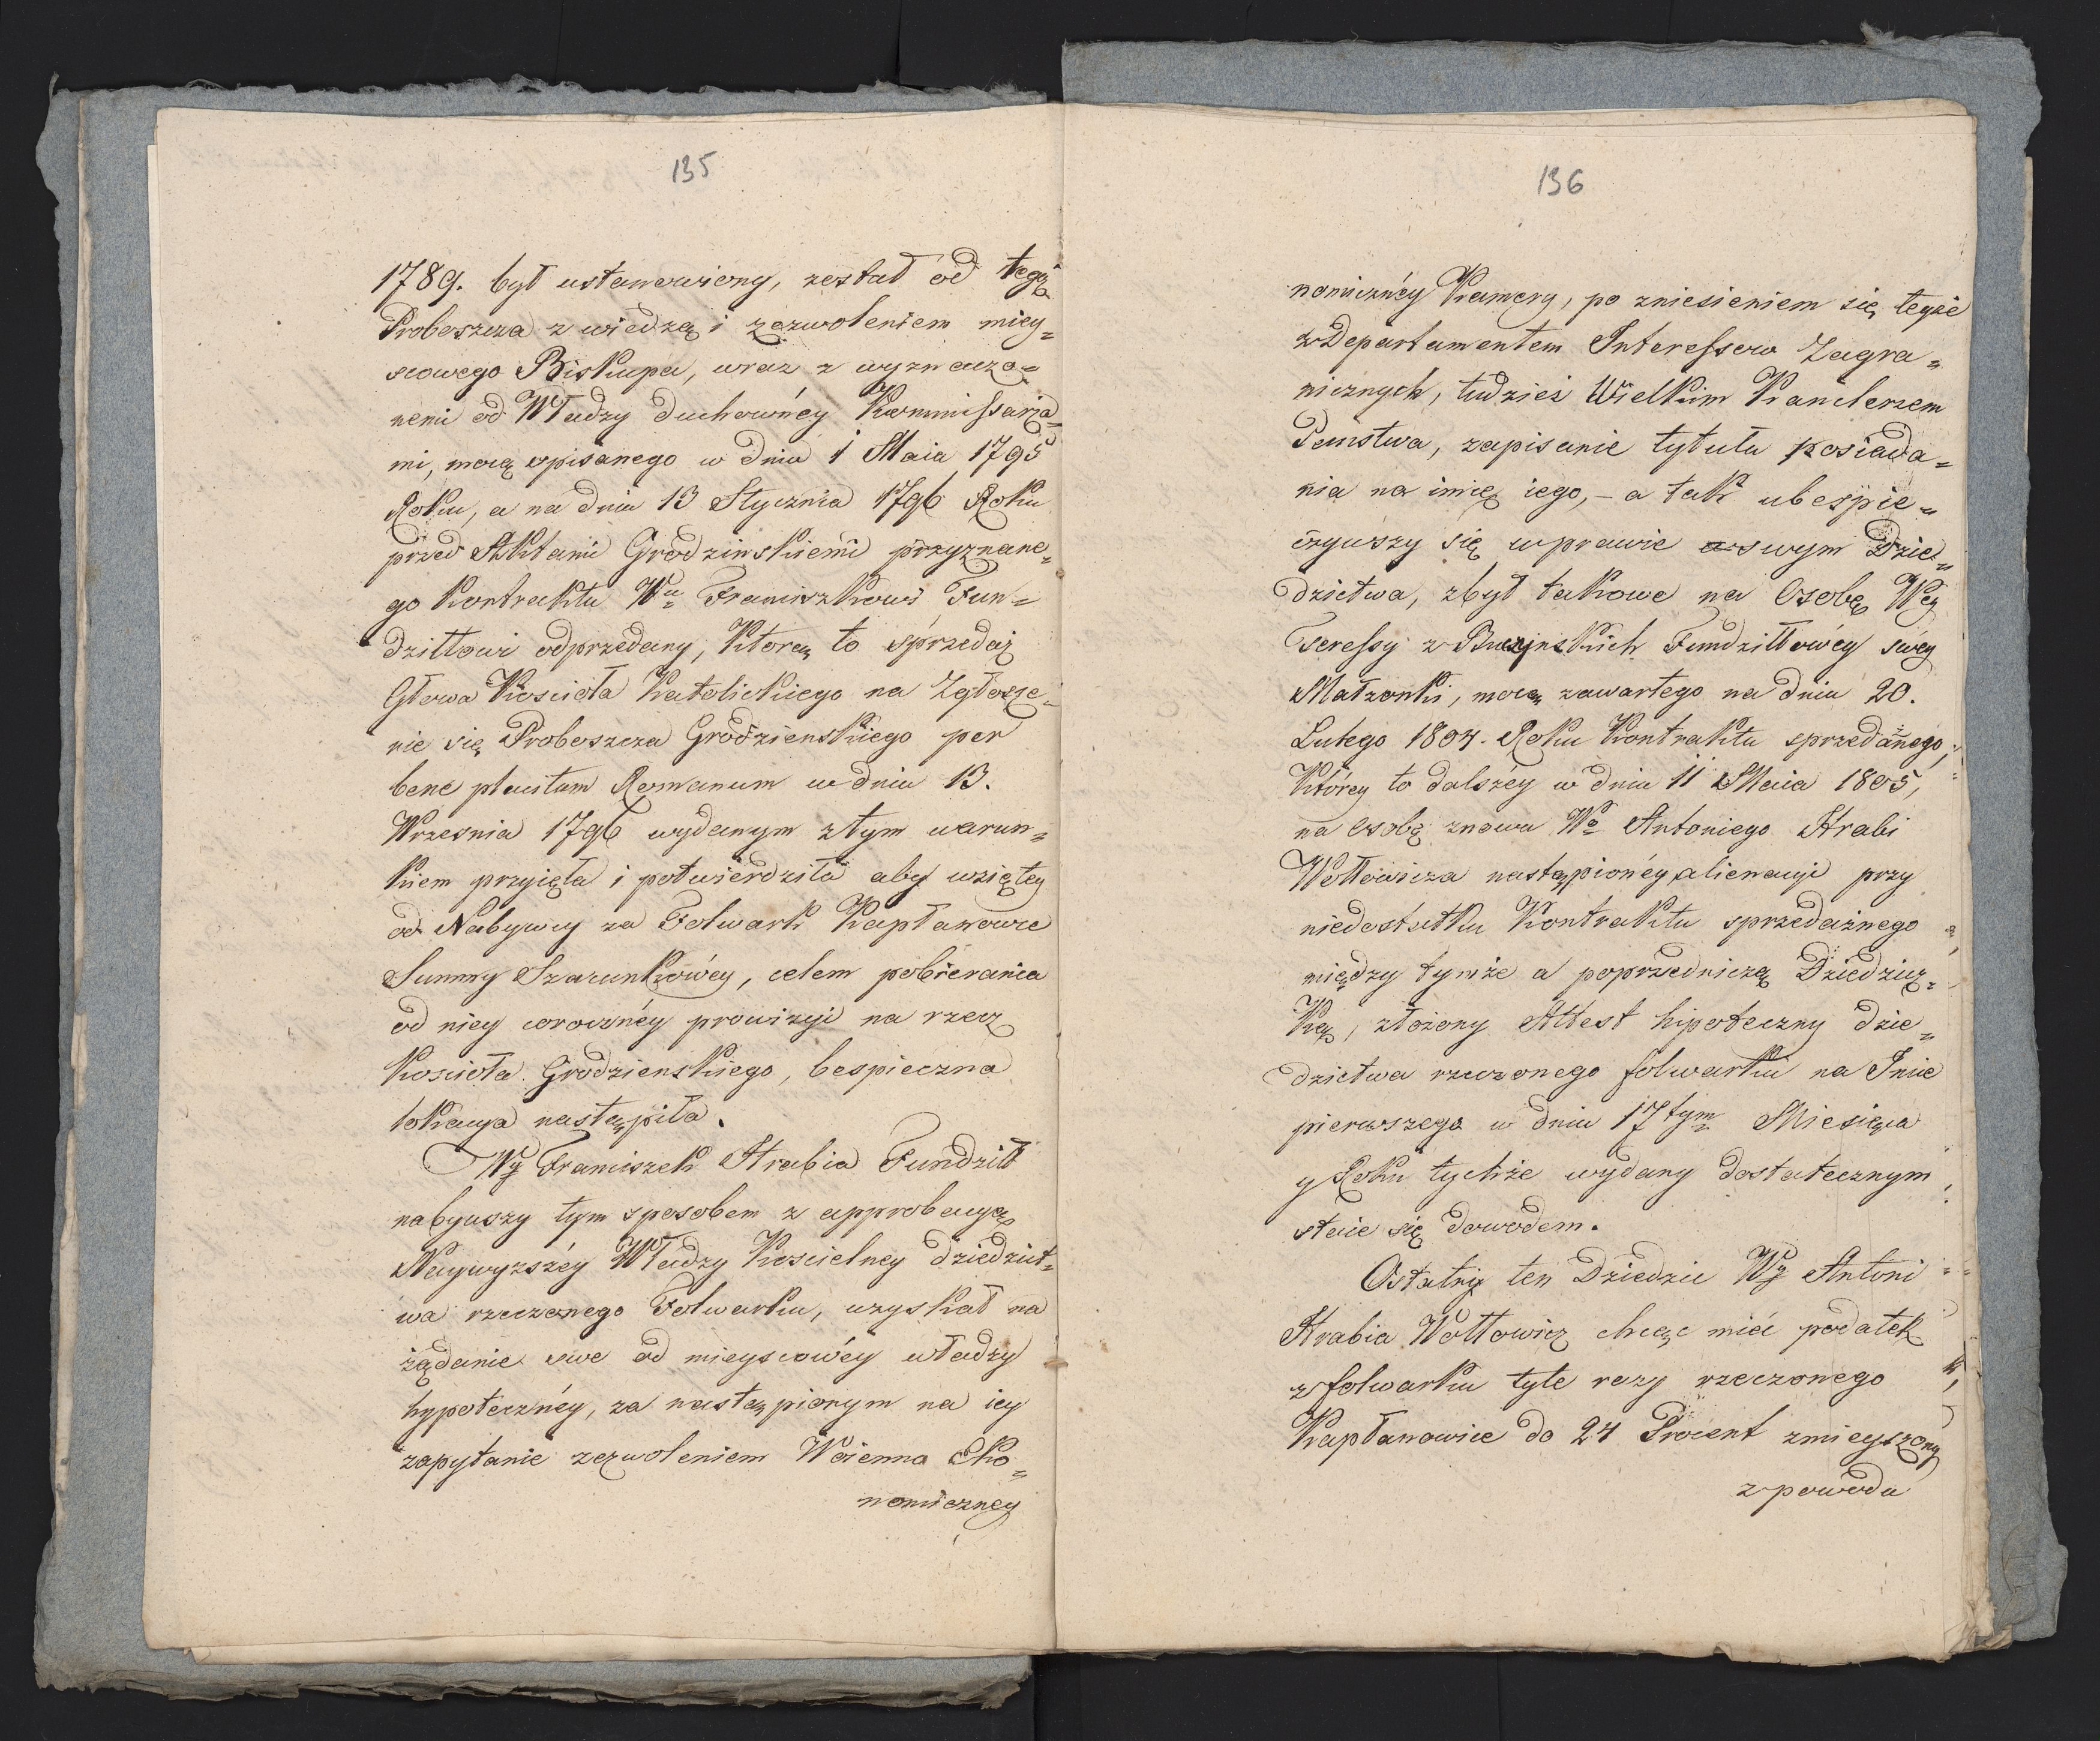 135
1789. był ustanowiony, został od tegoż
Proboszcza z wiedzą i zezwoleniem miey=
scowego Biskupa, wraz z wyznaczo=
nemi od Władzy duchownéy Kommissarza=
mi, mocą opisanego w dniu 1 Maia 1795
Roku, a na dniu 13 Stycznia 1796 Roku
przed Aktami Grodzinskiemi przyznane=
go Kontraktu Wu Franciszkowi Fun=
dziłłowi odprzedany, Którą to sprzedaż
Głowa Kościoła Katolickiego na Zgłosze=
nie się Proboszcza Grodzienskiego per
bene placitum Romanum w dniu 13.
Wrzesnia 1796 wydanym z tym warun=
kiem przyięła i potwierdziła aby wziętey
od Nabywcy za Folwark Kapłanowce
Summy Szacunkowéy, celem pobierania
od niey corocznéy prowizyi na rzecz
Kościoła Grodzienskiego, bespieczna
lokacya nastąpiła.
Wy Franciszek Hrabia Fundziłł
nabywszy tym sposobem z approbacyą
Naywyzszéy Władzy Koscielney dziedzict=
wa rzeczonego Folwarku, uzyskał na
żądanie swe od mieyscowéy władzy
hypotecznéy, za nastąpionym na iey
zapytanie zezwoleniem Woienno Eko=
nomiczney
136
nomicznéy Kamery, po zniesieniem się teyże
z Departamentem Interessow Zagra=
nicznych, tudzież Wielkim Kanclerzem
Państwa, zapisanie tytułu posiada=
nia na imię iego, - a tak ubespie=
czywszy się w prawie swym Dzie=
dzictwa, zbył takowe na Osobę Wey
Teressy z Buczynskich Fundziłłowéy swéy
Małzonki, mocą zawartego na dniu 20.
Lutego 1804. Roku Kontraktu sprzedażnego,
Któréy to dalszéy w dniu 11 Maia 1805,
na osobę znowu Wo Antoniego Hrabi
Wołłowicza nastąpionéy alienacyi przy
niedostatku Kontraktu sprzedażnego
między tymże a poprzedniczą Dziedzicz=
ką, złożony Attest hipoteczny dzie=
dzictwa rzeczonego folwarku na Imie
pierwszego w dniu 17tym Miesiąca
y Roku tychże wydany dostatecznym
staie się dowodem.
Ostatni ten Dziedzic Wy Antoni
Hrabia Wołłowicz chcąc mieć podatek
z folwarku tyle razy rzeczonego
Kapłanowice do 24 Procent zmieyszony
z powodu